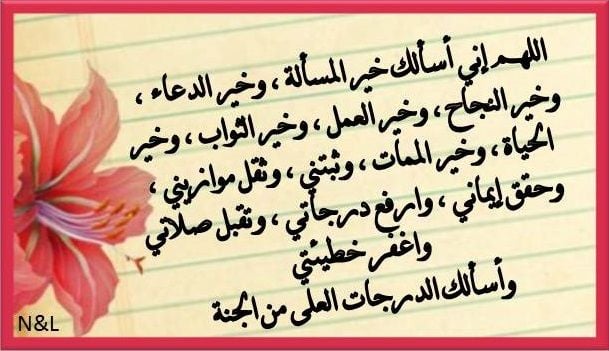 اللهم إني أسألك خير المسألة ، وخير الدعاء ،
وخير النجاح ، وخير العمل ، وخير الثواب ، وخير
الحياة ، وخير الممات ، وثبتني ، وثقل موازيني ،
وحقق إيماني ، وارفع درجاتي ، وتقبل صلاتي
واغفر خطيئتي
وأسألك الدرجات العلى من الجنة
N&L